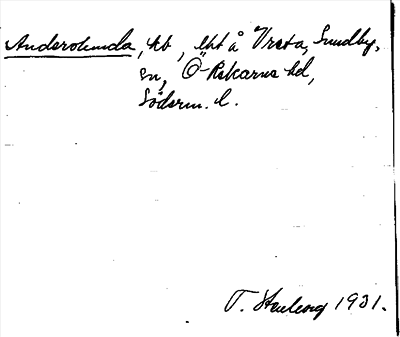 Anderslunda, ht, lht å Vreta, Sundby,
sn, Ö-Rekarne hd,
Söderm. l.
T. Stenberg 1931.